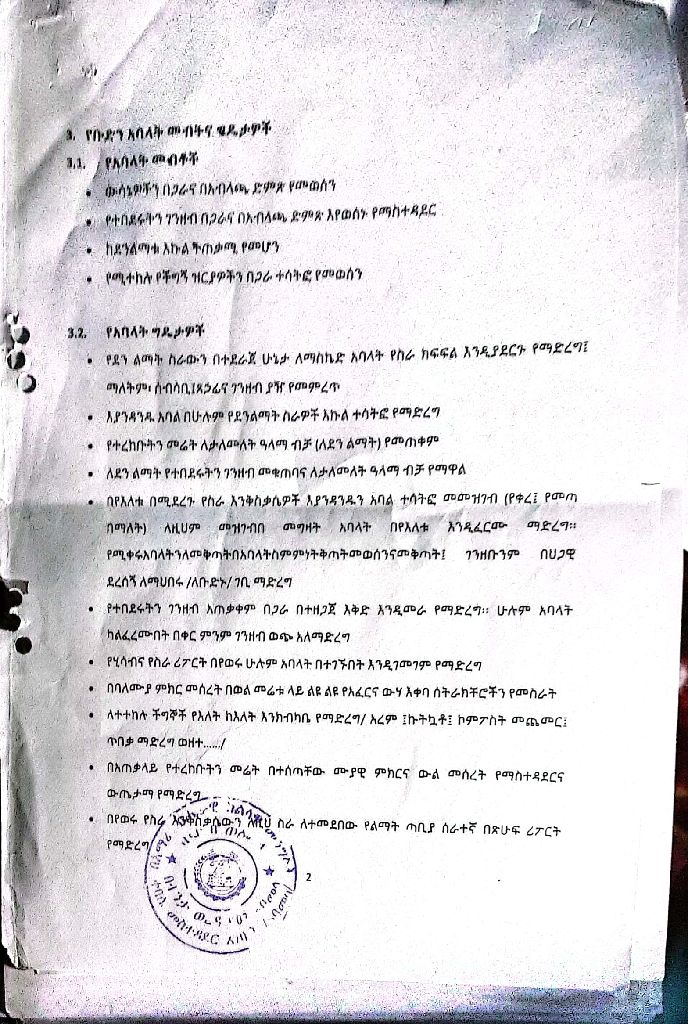 3. የቡድን አባላት መብትና ግዴታዎች
3.1. የአባላት መብቶች
• ውሳኔዎችን በጋራና በአብላጫ ድምጽ የመወሰን
• የተበደሩትን ገንዘብ በጋራና በአብላጫ ድምጽ እየወሰኑ የማስተዳደር
• ከደንልማቱ እኩል ተጠቃሚ የመሆን
• የሚተከሉ የችግኝ ዝርያዎችን በጋራ ተሳትፎ የመወሰን
3.2. የአባላት ግዴታዎች
• የደን ልማት ስራውን በተደራጀ ሁኔታ ለማስኬድ አባላት የስራ ክፍፍል እንዲያደርጉ የማድረግ፤
ማለትም፡ ሰብሳቢ፤ጸኃፊና ገንዘብ ያዥ የመምረጥ
• እያንዳንዱ አባል በሁሉም የደንልማት ስራዎች እኩል ተሳትፎ የማድረግ
• የተረከቡትን መሬት ለታለመለት ዓላማ ብቻ (ለደን ልማት) የመጠቀም
• ለደን ልማት የተበደሩትን ገንዘብ መቁጠባና ለታለመለት ዓላማ ብቻ የማዋል
• በየእለቱ በሚደረጉ የስራ እንቅስቃሴዎች እያንዳንዱን አባል ተሳትፎ መመዝገብ (የቀረ፤ የመጣ
በማለት) ለዚህም መዝገብበ መግዛት አባላት በየእለቱ እንዲፈርሙ ማድረግ።
የሚቀሩአባላትንለመቅጣትበአባላትስምምነትቅጣትመወሰንናመቅጣት፤ ገንዘቡንም በህጋዊ
ደረሰኝ ለማህበሩ /ለቡድኑ/ ገቢ ማድረግ
• የተበደሩትን ገንዘብ አጠቃቀም በጋራ በተዘጋጀ እቅድ እንዲመራ የማድረግ። ሁሉም አባላት
ካልፈረሙበት በቀር ምንም ገንዘብ ወጭ አለማድረግ
• የሂሳብና የስራ ሪፖርት በየወሩ ሁሉም አባላት በተገኙበት እንዲገመገም የማድረግ
• በባለሙያ ምክር መሰረት በወል መሬቱ ላይ ልዩ ልዩ የአፈርና ውሃ እቀባ ስትራክቸሮችን የመስራት
• ለተተከሉ ችግኞች የእለት ከእለት እንክብካቤ የማድረግ/ አረም ፤ኩትኳቶ፤ ኮምፖስት መጨመር፤
ጥበቃ ማድረግ ወዘተ....../
• በአጠቃላይ የተረከቡትን መሬት በተሰጣቸው ሙያዊ ምክርና ውል መሰረት የማስተዳደርና
ውጤታማ የማድረግ
• በየወሩ የስራ እንቅስቃሴውን ለዚህ ስራ ለተመደበው የልማት ጣቢያ ሰራተኛ በጽሁፍ ሪፖርት
የማድረግ
2